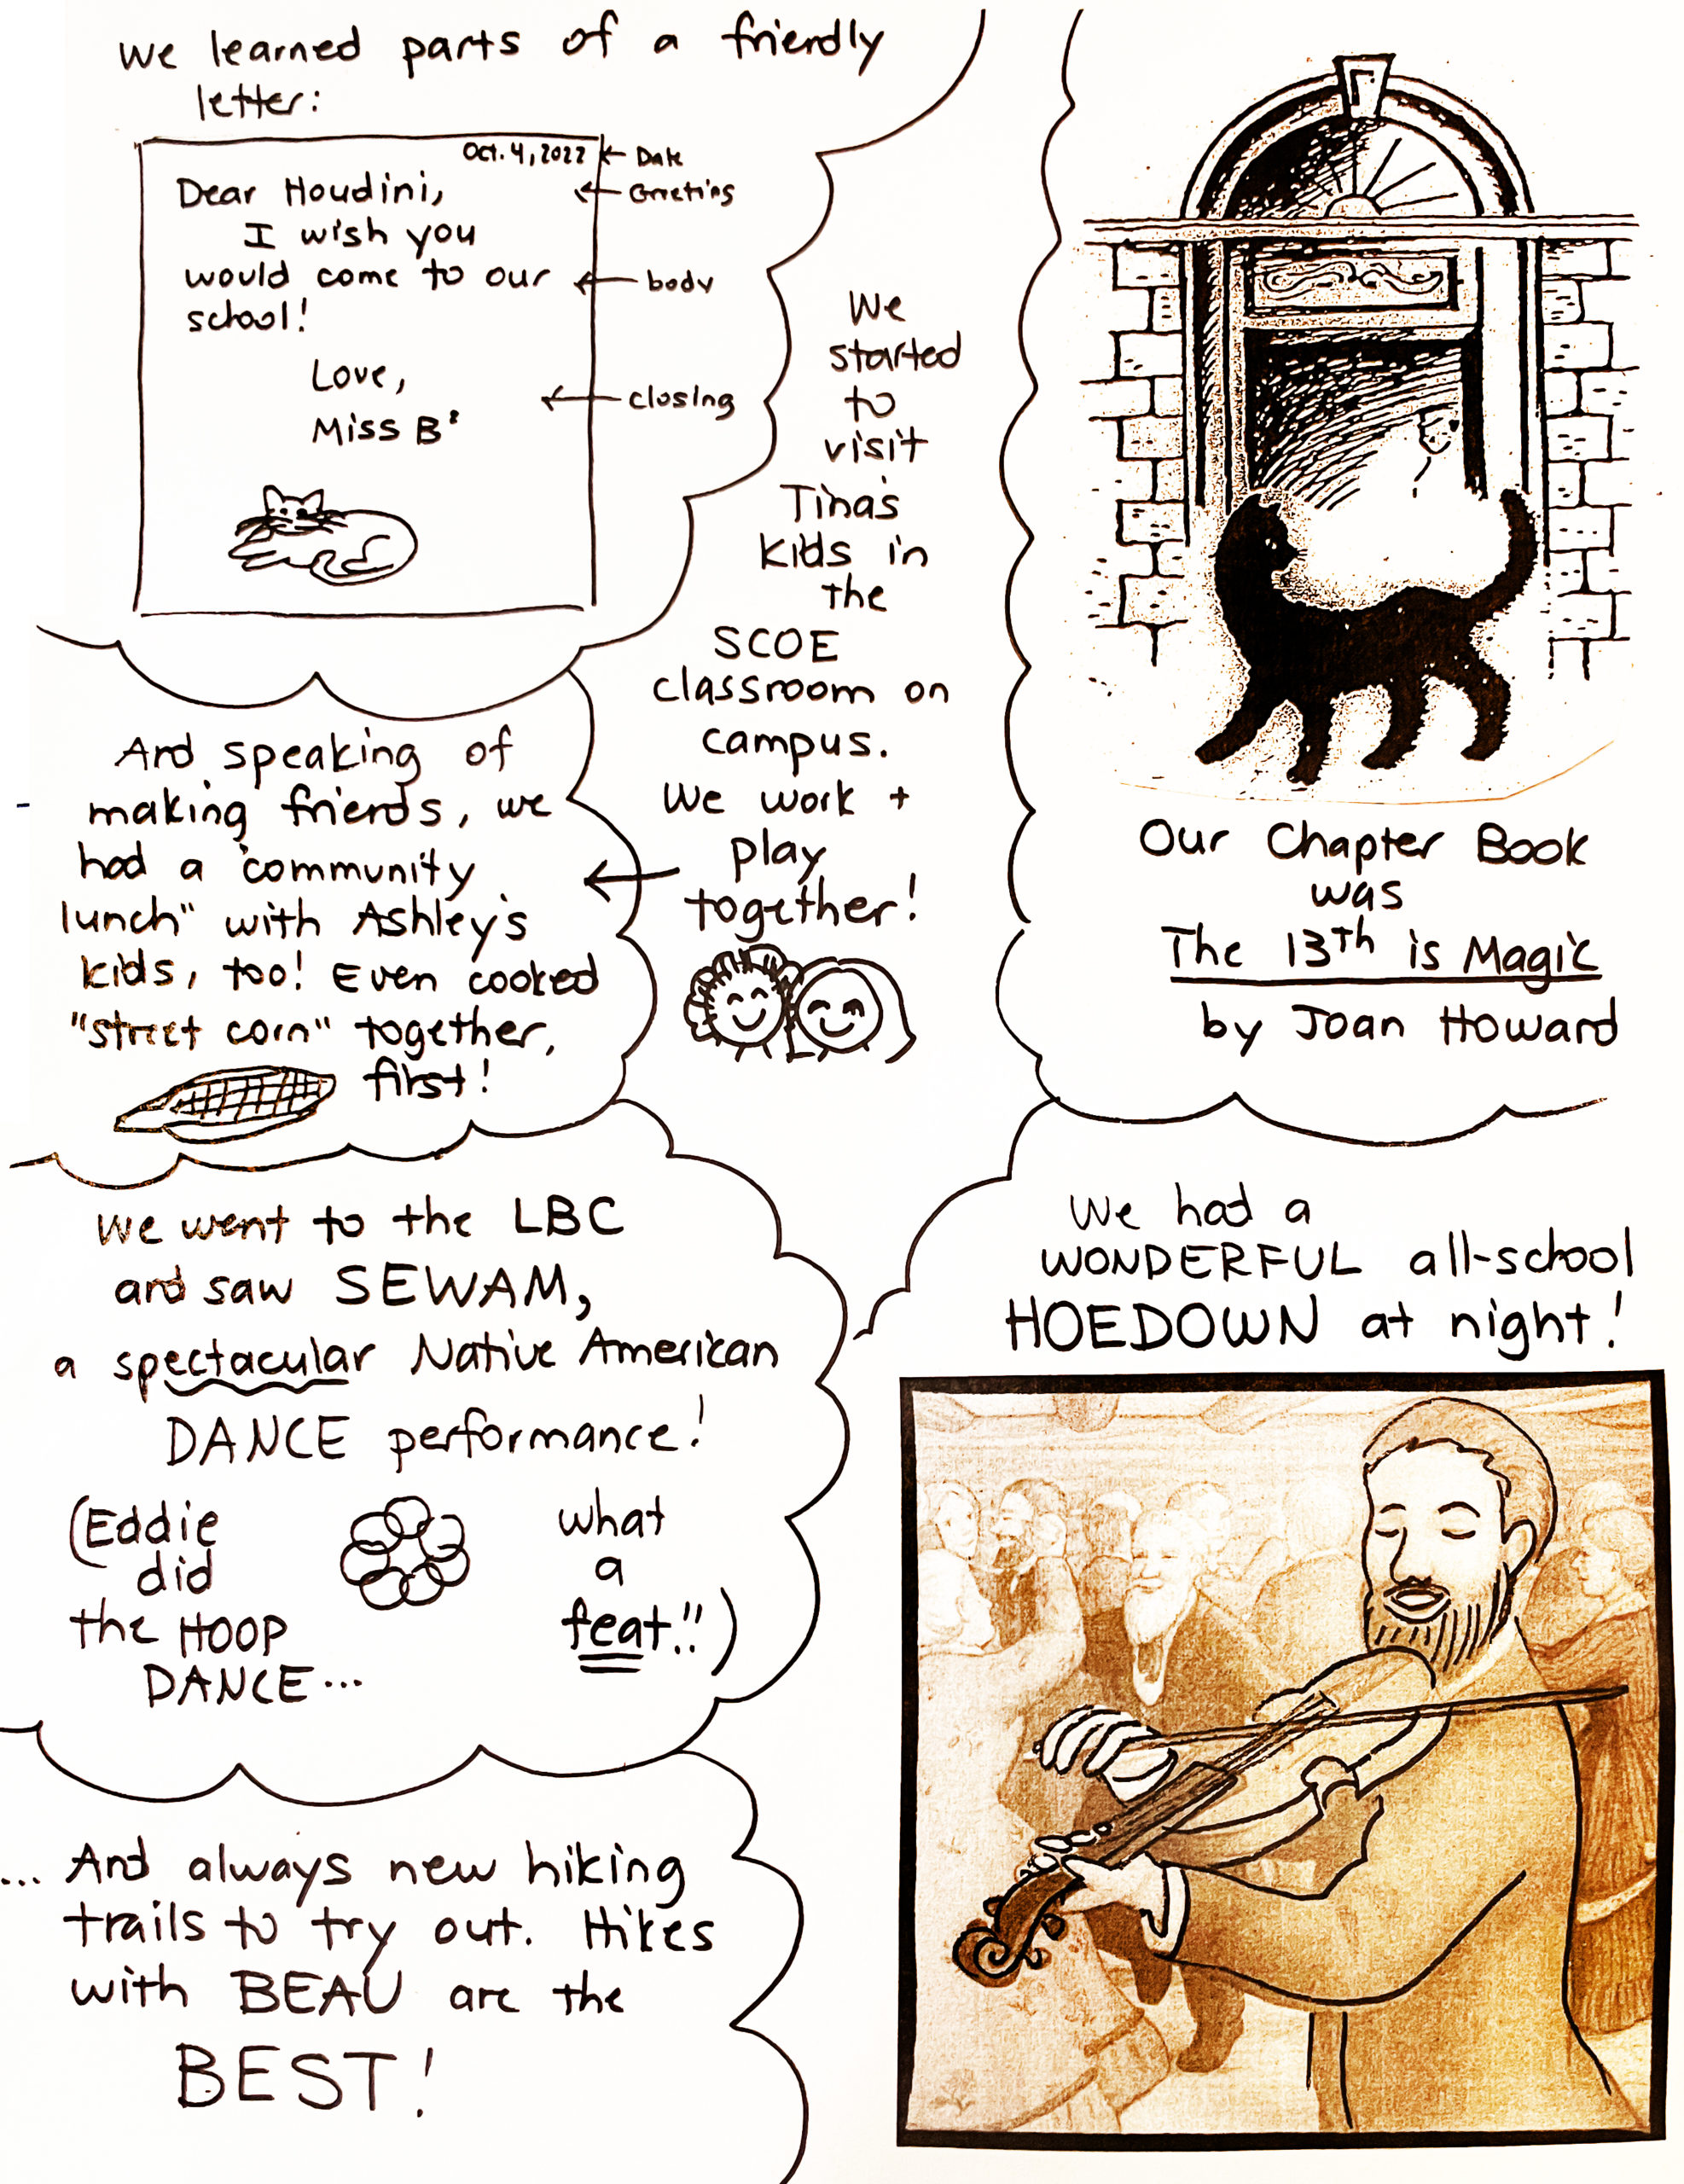 We learned parts of a friendly
letter:
Oct. 4, 2022 ← Date
Dear Houdini, ← Greeting
I wish you
would come to our ← body
school!
Love, ← closing
Miss B
We
started
to
visit
Tina's
kids in
the
SCOE
classroom on
campus.
We work +
play
together!
And speaking of
making friends, we
had a "community
lunch" with Ashley's
kids, too! Even cooked
"street corn" together,
first!
Our Chapter Book
was
The 13th is Magic
by Joan Howard
We went to the LBC
and saw SEWAM,
a spectacular Native American
DANCE performance!
(Eddie
did
the HOOP
DANCE...
what
a
feat!!)
We had a
WONDERFUL all-school
HOEDOWN at night!
... And always new hiking
trails to try out. Hikes
with BEAU are the
BEST!